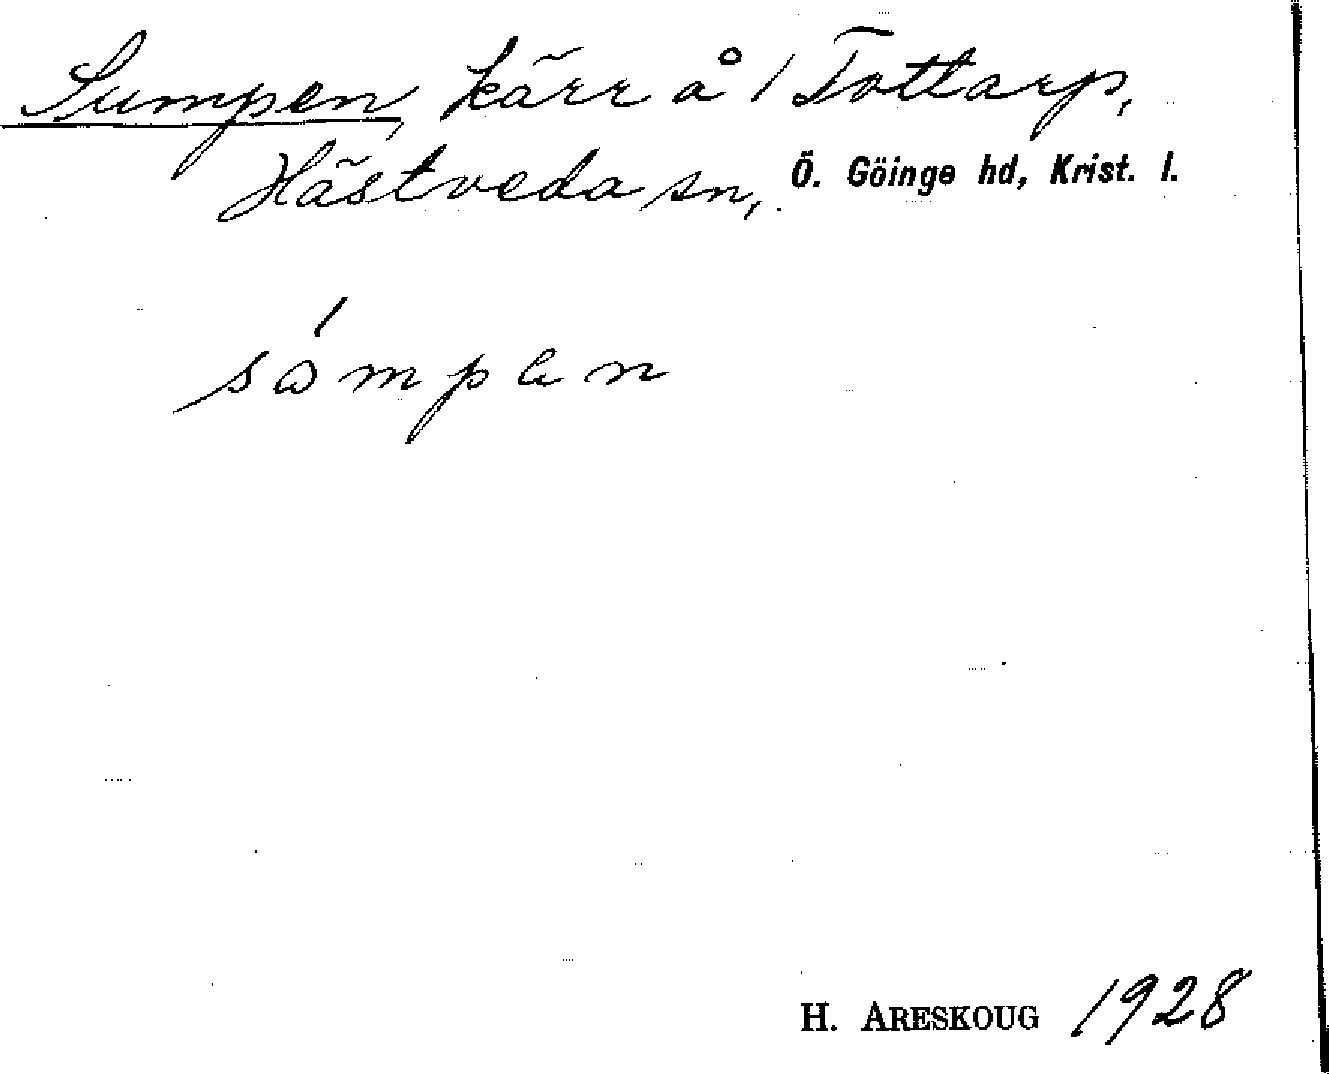 Sumpen, kärr å 1 Tottarp,
Hästveda sn, Ö. Göinge hd, Krist. l.
H. ARESKOUG 1928